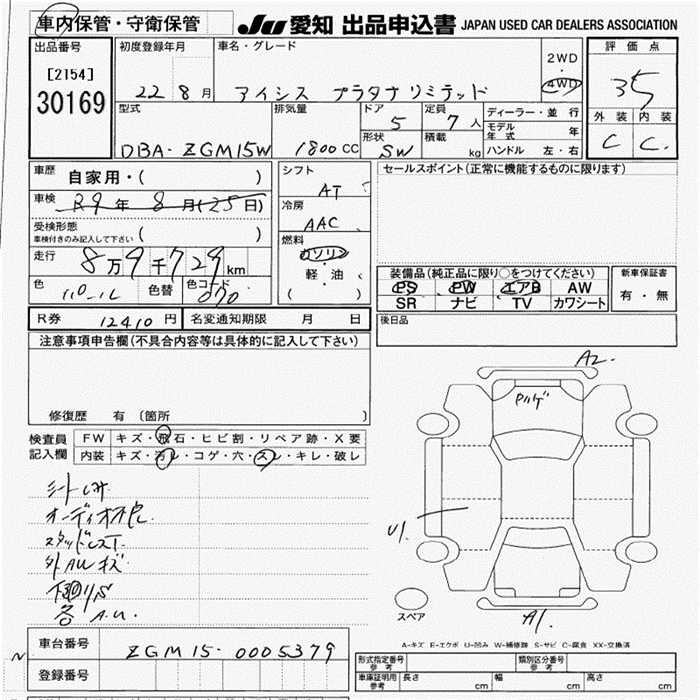 車内保管・守衛保管 JU 愛知 出品申込書 JAPAN USED CAR DEALERS ASSOCIATION
出品番号 初度登録年月 車名・グレード 2WD ・ 4WD 評価点
[2154]
30169
22 8月 アイシス プラタナリミテッド 35
型式 排気量 ドア 定員 ディーラー・並行 外装 内装
5 7人 モデル年式 年
DBA-ZGM15W 1800CC 形状 SW 積載 kg ハンドル 左・右 C C
車歴 自家用・( ) シフト AT セールスポイント(正常に機能するものに限ります)
車検 R9年 8月(25日) 冷房 AAC
受検形態 車検付きのみ記入して下さい ( ) 燃料 ガソリン
走行 8万9千729km 軽・油 ( ) 装備品(純正品に限り○をつけてください) 新車保証書
色 パール 色替 色コード 070 PS PW エアB AW 有・無
SR ナビ TV カワシート
R券 12410円 名変通知期限 月 日 後日品
注意事項申告欄(不具合内容等は具体的に記入して下さい)
A2.
修復歴 有 〔箇所 〕
検査員記入欄 FW キズ・飛石・ヒビ割・リペア跡・X要
内装 キズ・汚レ・コゲ・穴・スレ・キレ・破レ
オーディオ不良.
外AWキズ
各A.U.
U1
スペア
A1.
A-キズ E-エクボ U-凹み W-補修跡 S-サビ C-腐食 XX-交換済
車台番号 ZGM15-0005379 型式指定番号 参考 類別区分番号 参考
登録番号 車庫証明用 参考 長さ cm 幅 cm 高さ cm
N